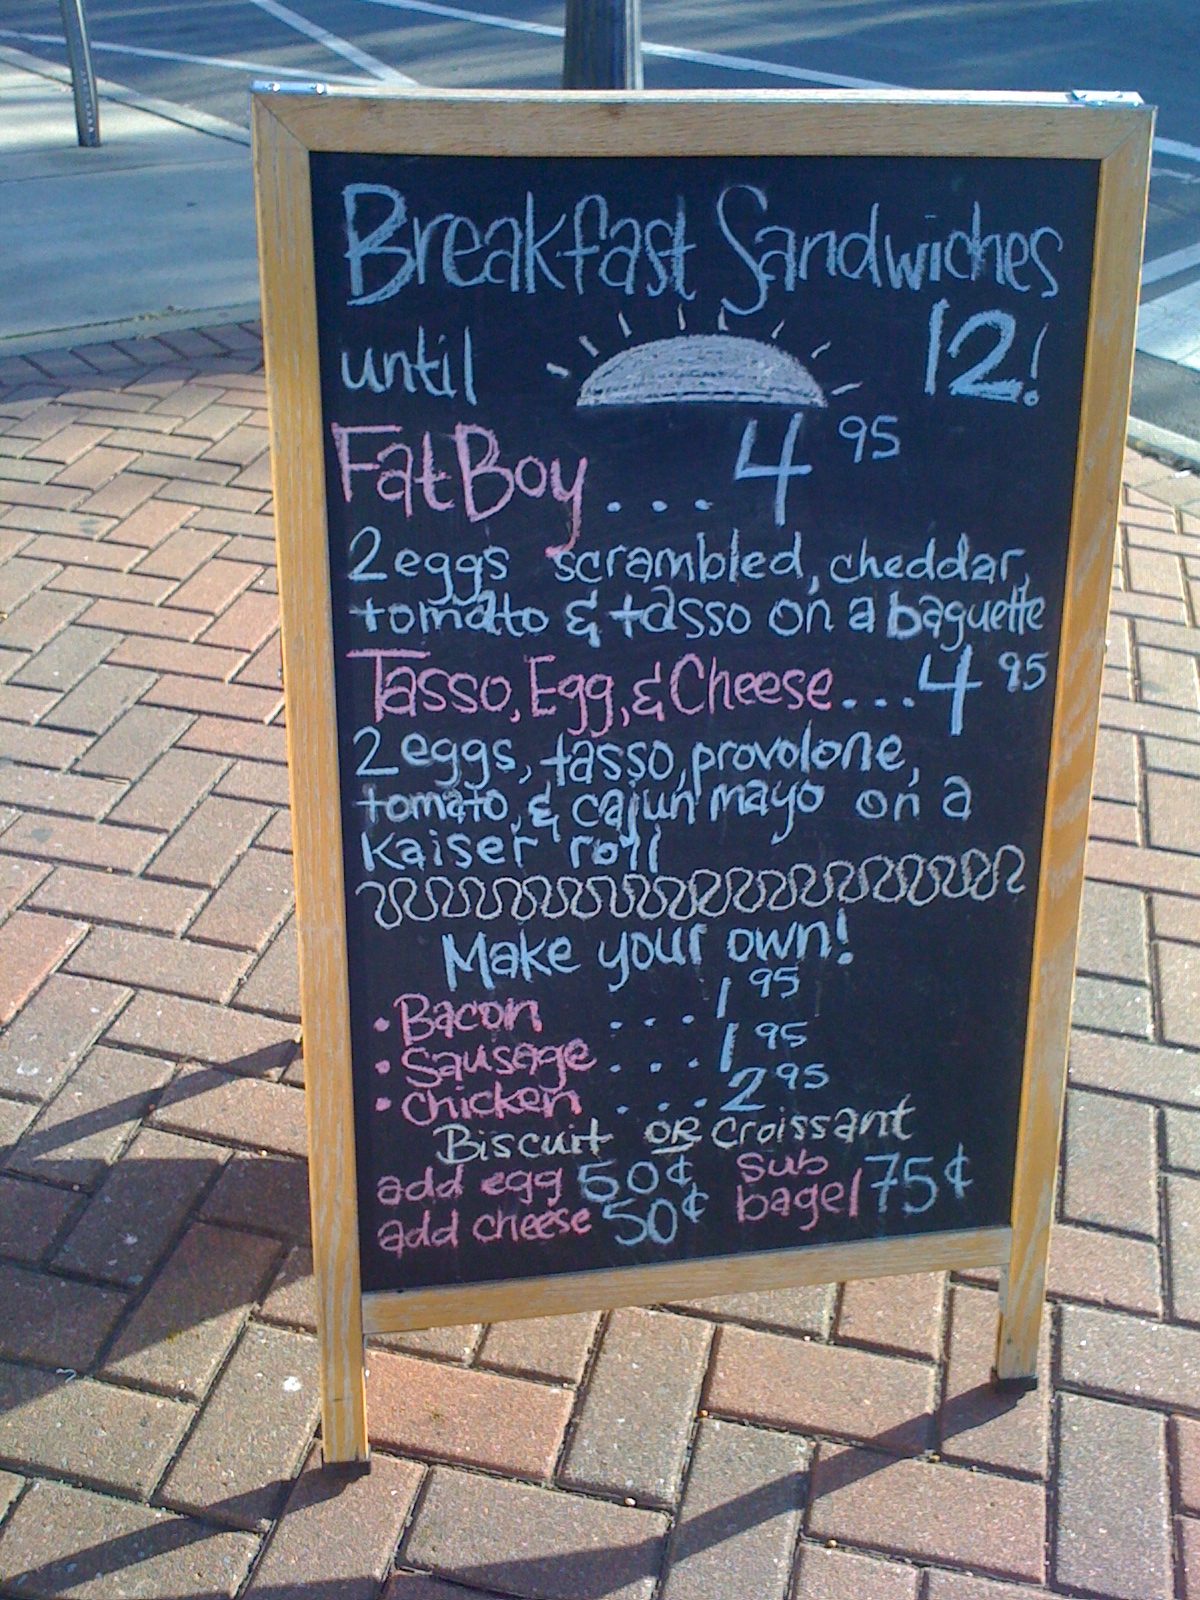 Breakfast Sandwiches
until 12!
Fat Boy... 4 95
2 eggs scrambled, cheddar,
tomato & tasso on a baguette
Tasso, Egg, & Cheese... 4 95
2 eggs, tasso, provolone,
tomato, & cajun mayo on a
Kaiser roll
Make your own!
• Bacon ... 1 95
• Sausage ... 1 95
• Chicken ... 2 95
Biscuit OR Croissant
add egg 50¢ sub
add cheese 50¢ bagel 75¢